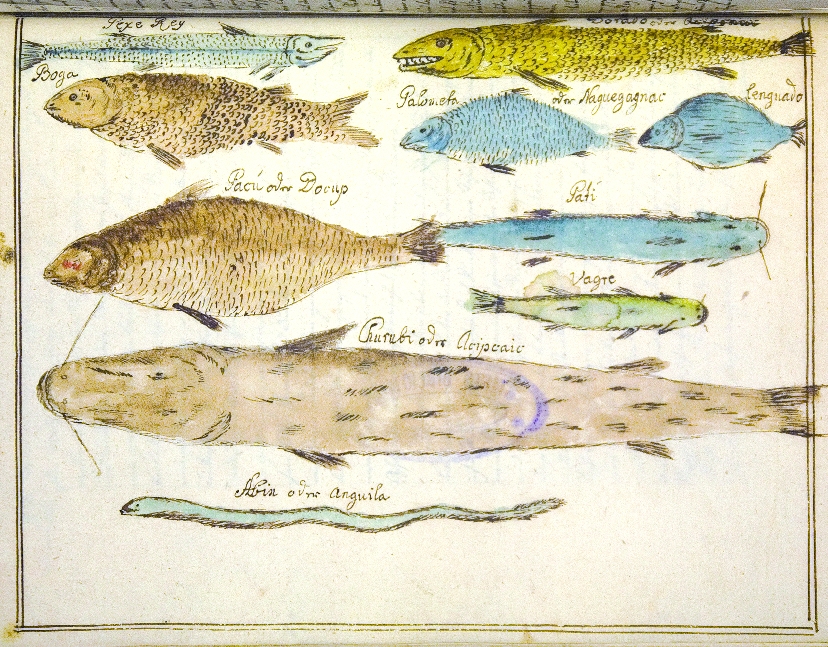 Pexe Rey
Dorado oder
Boga
Palometa oder Naguegagnac
Lenguado
Pacú oder Docup
Pati
Vagre
Churubi oder Acipcaic
Abin oder Anguila